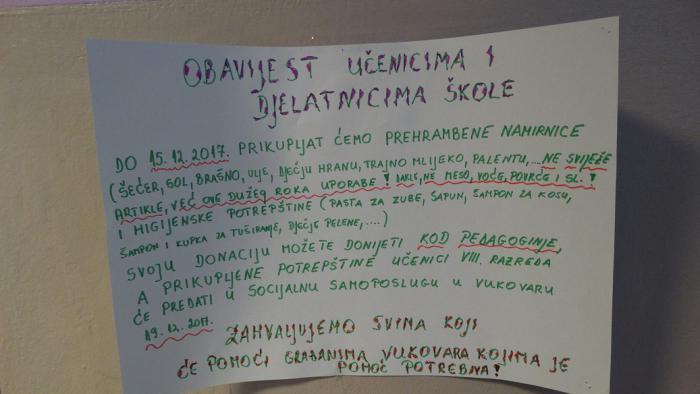 OBAVIJEST UČENICIMA I
DJELATNICIMA ŠKOLE
DO 15.12.2017. PRIKUPLJAT ĆEMO PREHRAMBENE NAMIRNICE
(ŠEĆER, SOL, BRAŠNO, ULJE, DJEČJU HRANU, TRAJNO MLIJEKO, PALENTU,...NE SVJEŽE
ARTIKLE, VEĆ OVE DUŽEG ROKA UPORABE! DAKLE, NE MESO, VOĆE, POVRĆE I SL.!
I HIGIJENSKE POTREPŠTINE (PASTA ZA ZUBE, SAPUN, ŠAMPON ZA KOSU,
ŠAMPON I KUPKA ZA TUŠIRANJE, DJEČJE PELENE,....)
SVOJU DONACIJU MOŽETE DONIJETI KOD PEDAGOGINJE,
A PRIKUPLJENE POTREPŠTINE UČENICI VIII. RAZREDA
ĆE PREDATI U SOCIJALNU SAMOPOSLUGU U VUKOVARU
19.12.2017.
ZAHVALJUJEMO SVIMA KOJI
ĆE POMOĆI GRAĐANIMA VUKOVARA KOJIMA JE
POMOĆ POTREBNA!